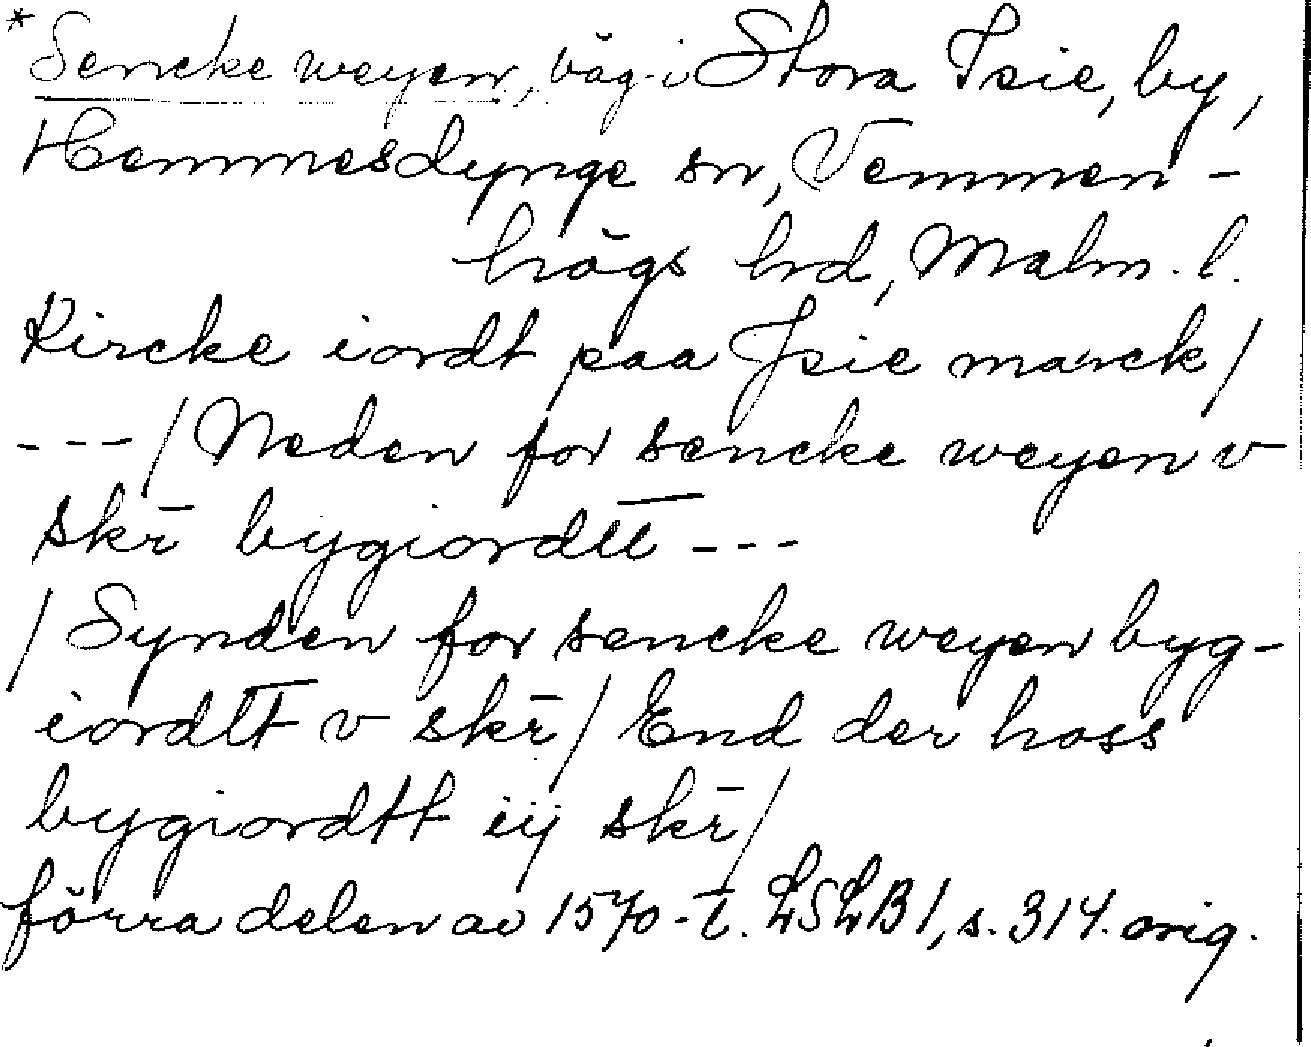 *Sencke weyen, väg i Stora Isie, by,
Hemmesdynge sn, Vemmen-
högs hrd, Malm. l.
Kircke iordt paa Jsie marck/
---/Neden for sencke weyen v
skr̄ bygiordtt̄ ---
/Synden for sencke weyen byg-
iordtt̄ v skr̄/End der hoss
bygiordtt iij skr̄/
förra delen av 1570-t. LSLB1, s. 314. orig.